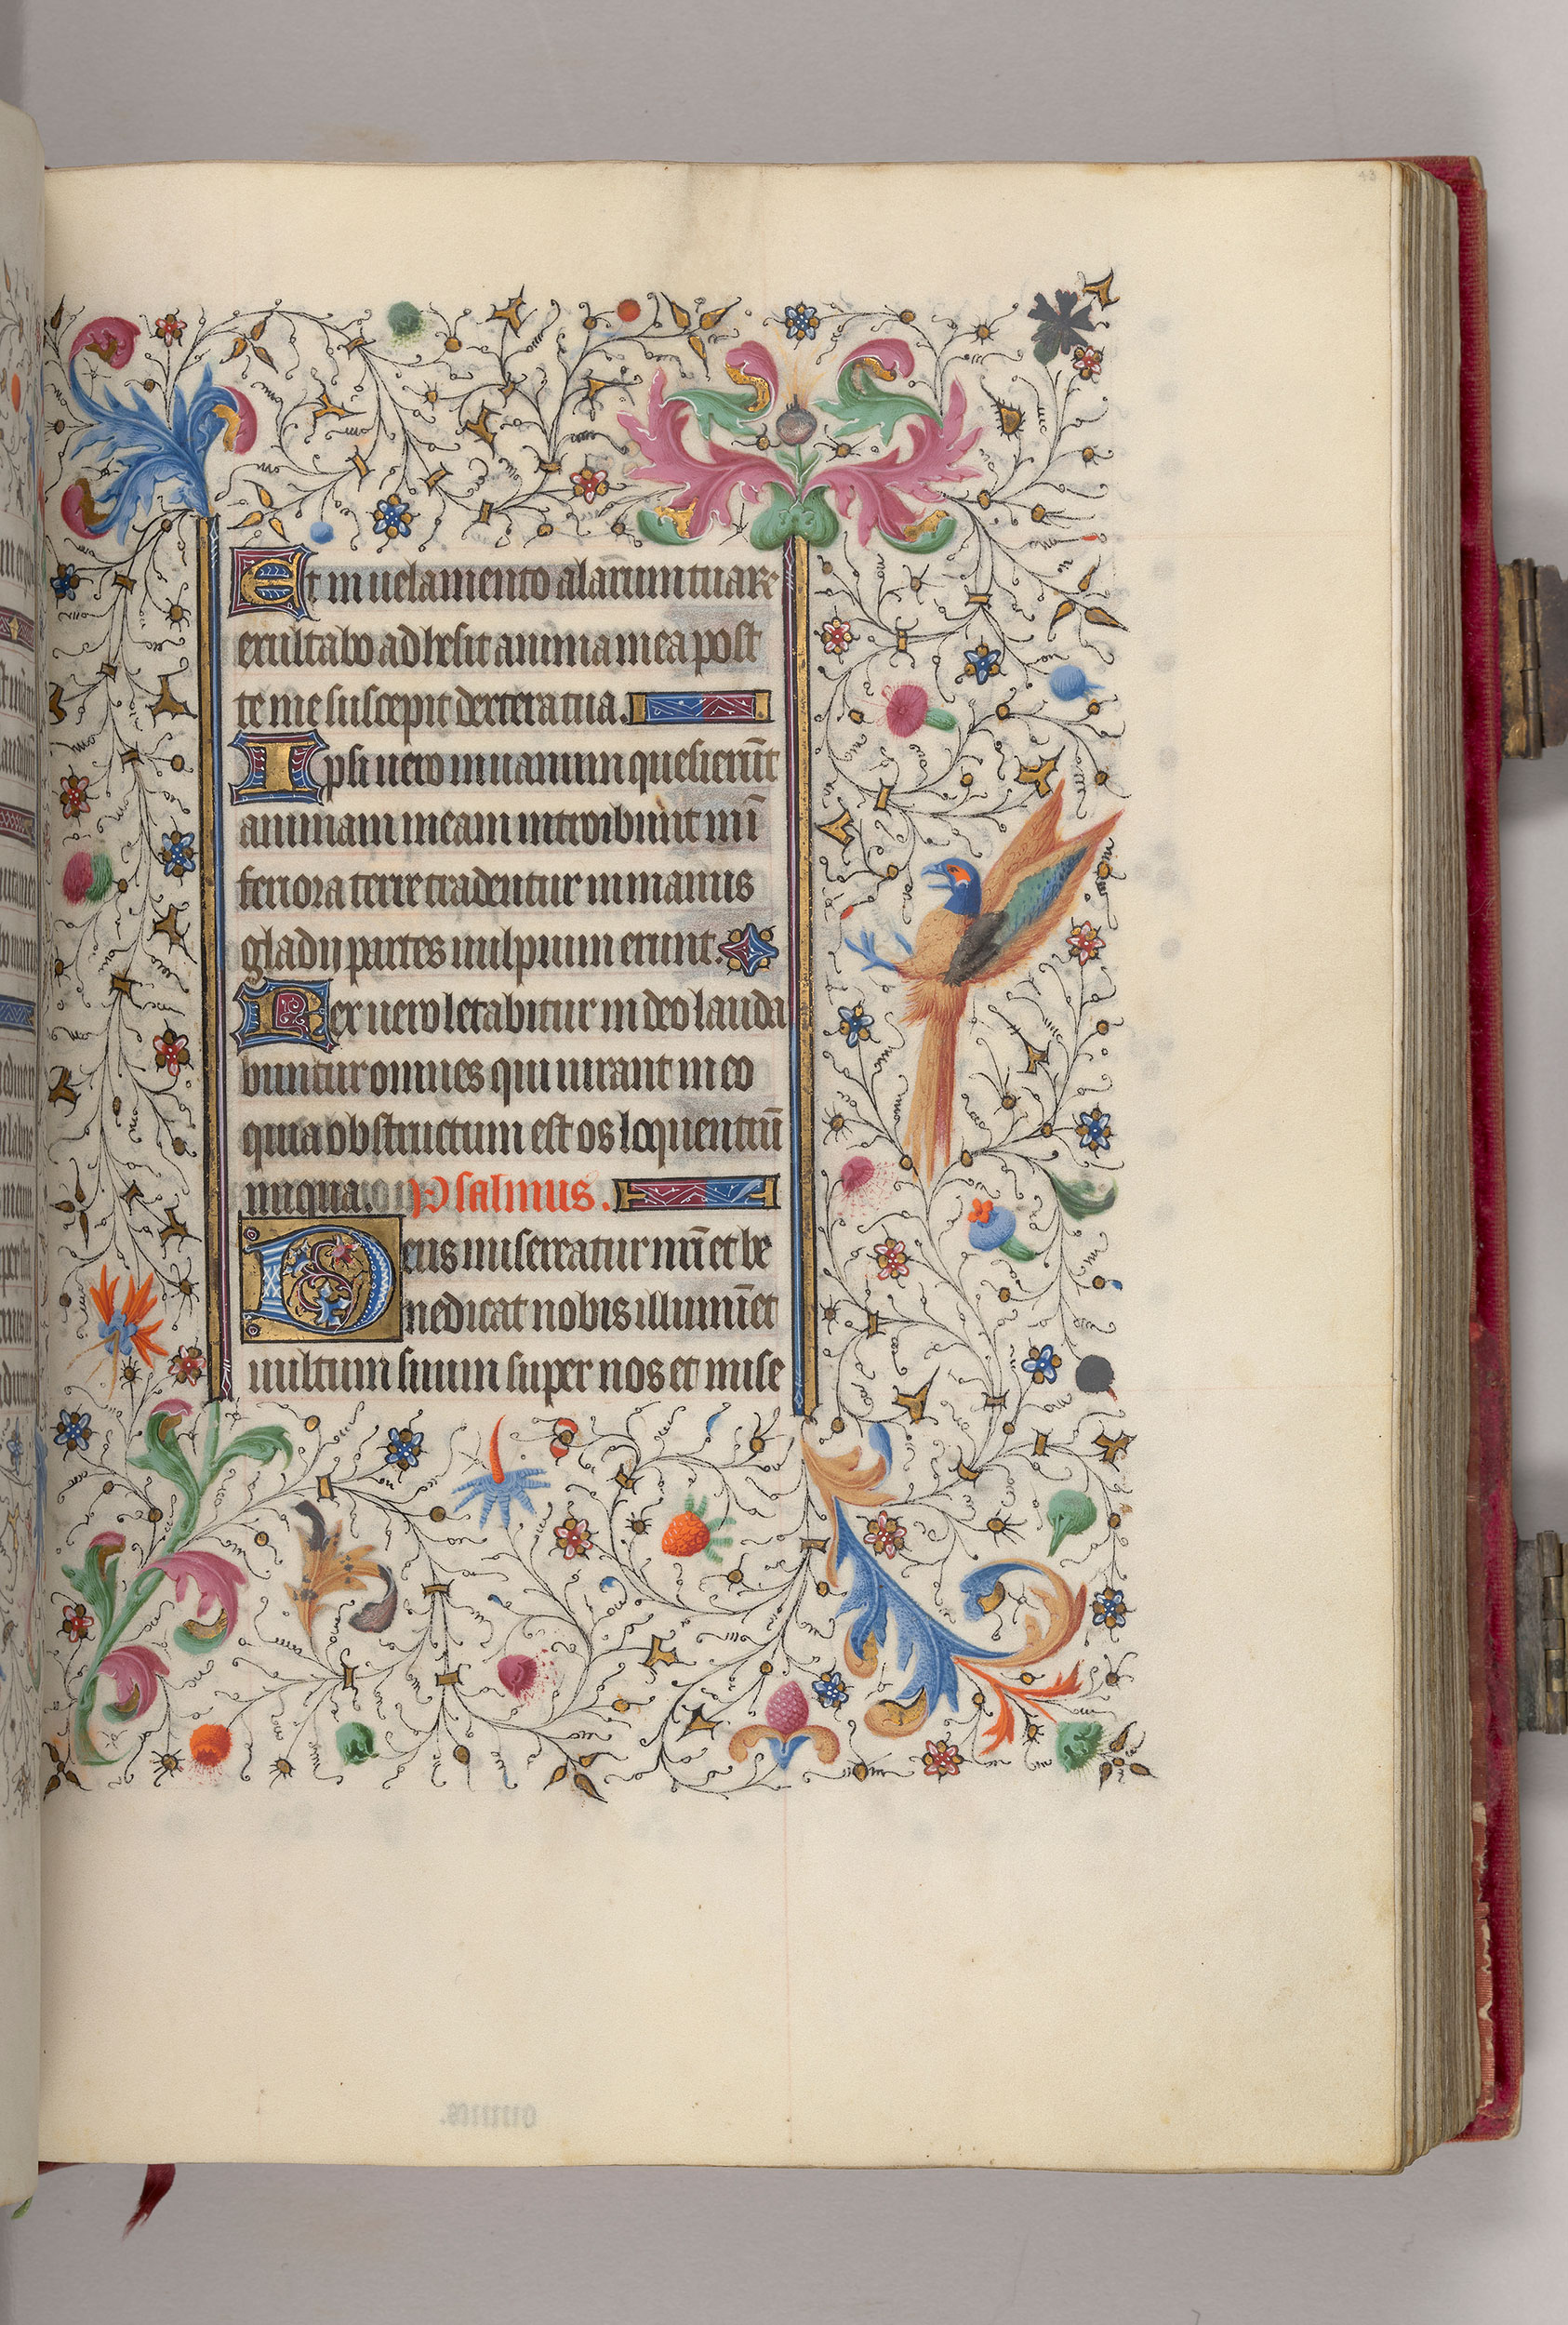 43
Et in uelamento alarum tuarꝫ
exultabo adhesit anima mea post
te me suscepit dextera tua.
Ipsi uero in uanum quesierūt
animam meam introibunt in ī
feriora terre tradentur in manus
gladii partes uulpium erunt.
Rex uero letabitur in deo lauda
buntur omnes qui iurant in eo
quia obstructum est os loquentiū
iniqua. Psalmus.
Deus misereatur nr̄i et be
nedicat nobis illumīet
uultum suum super nos et mise